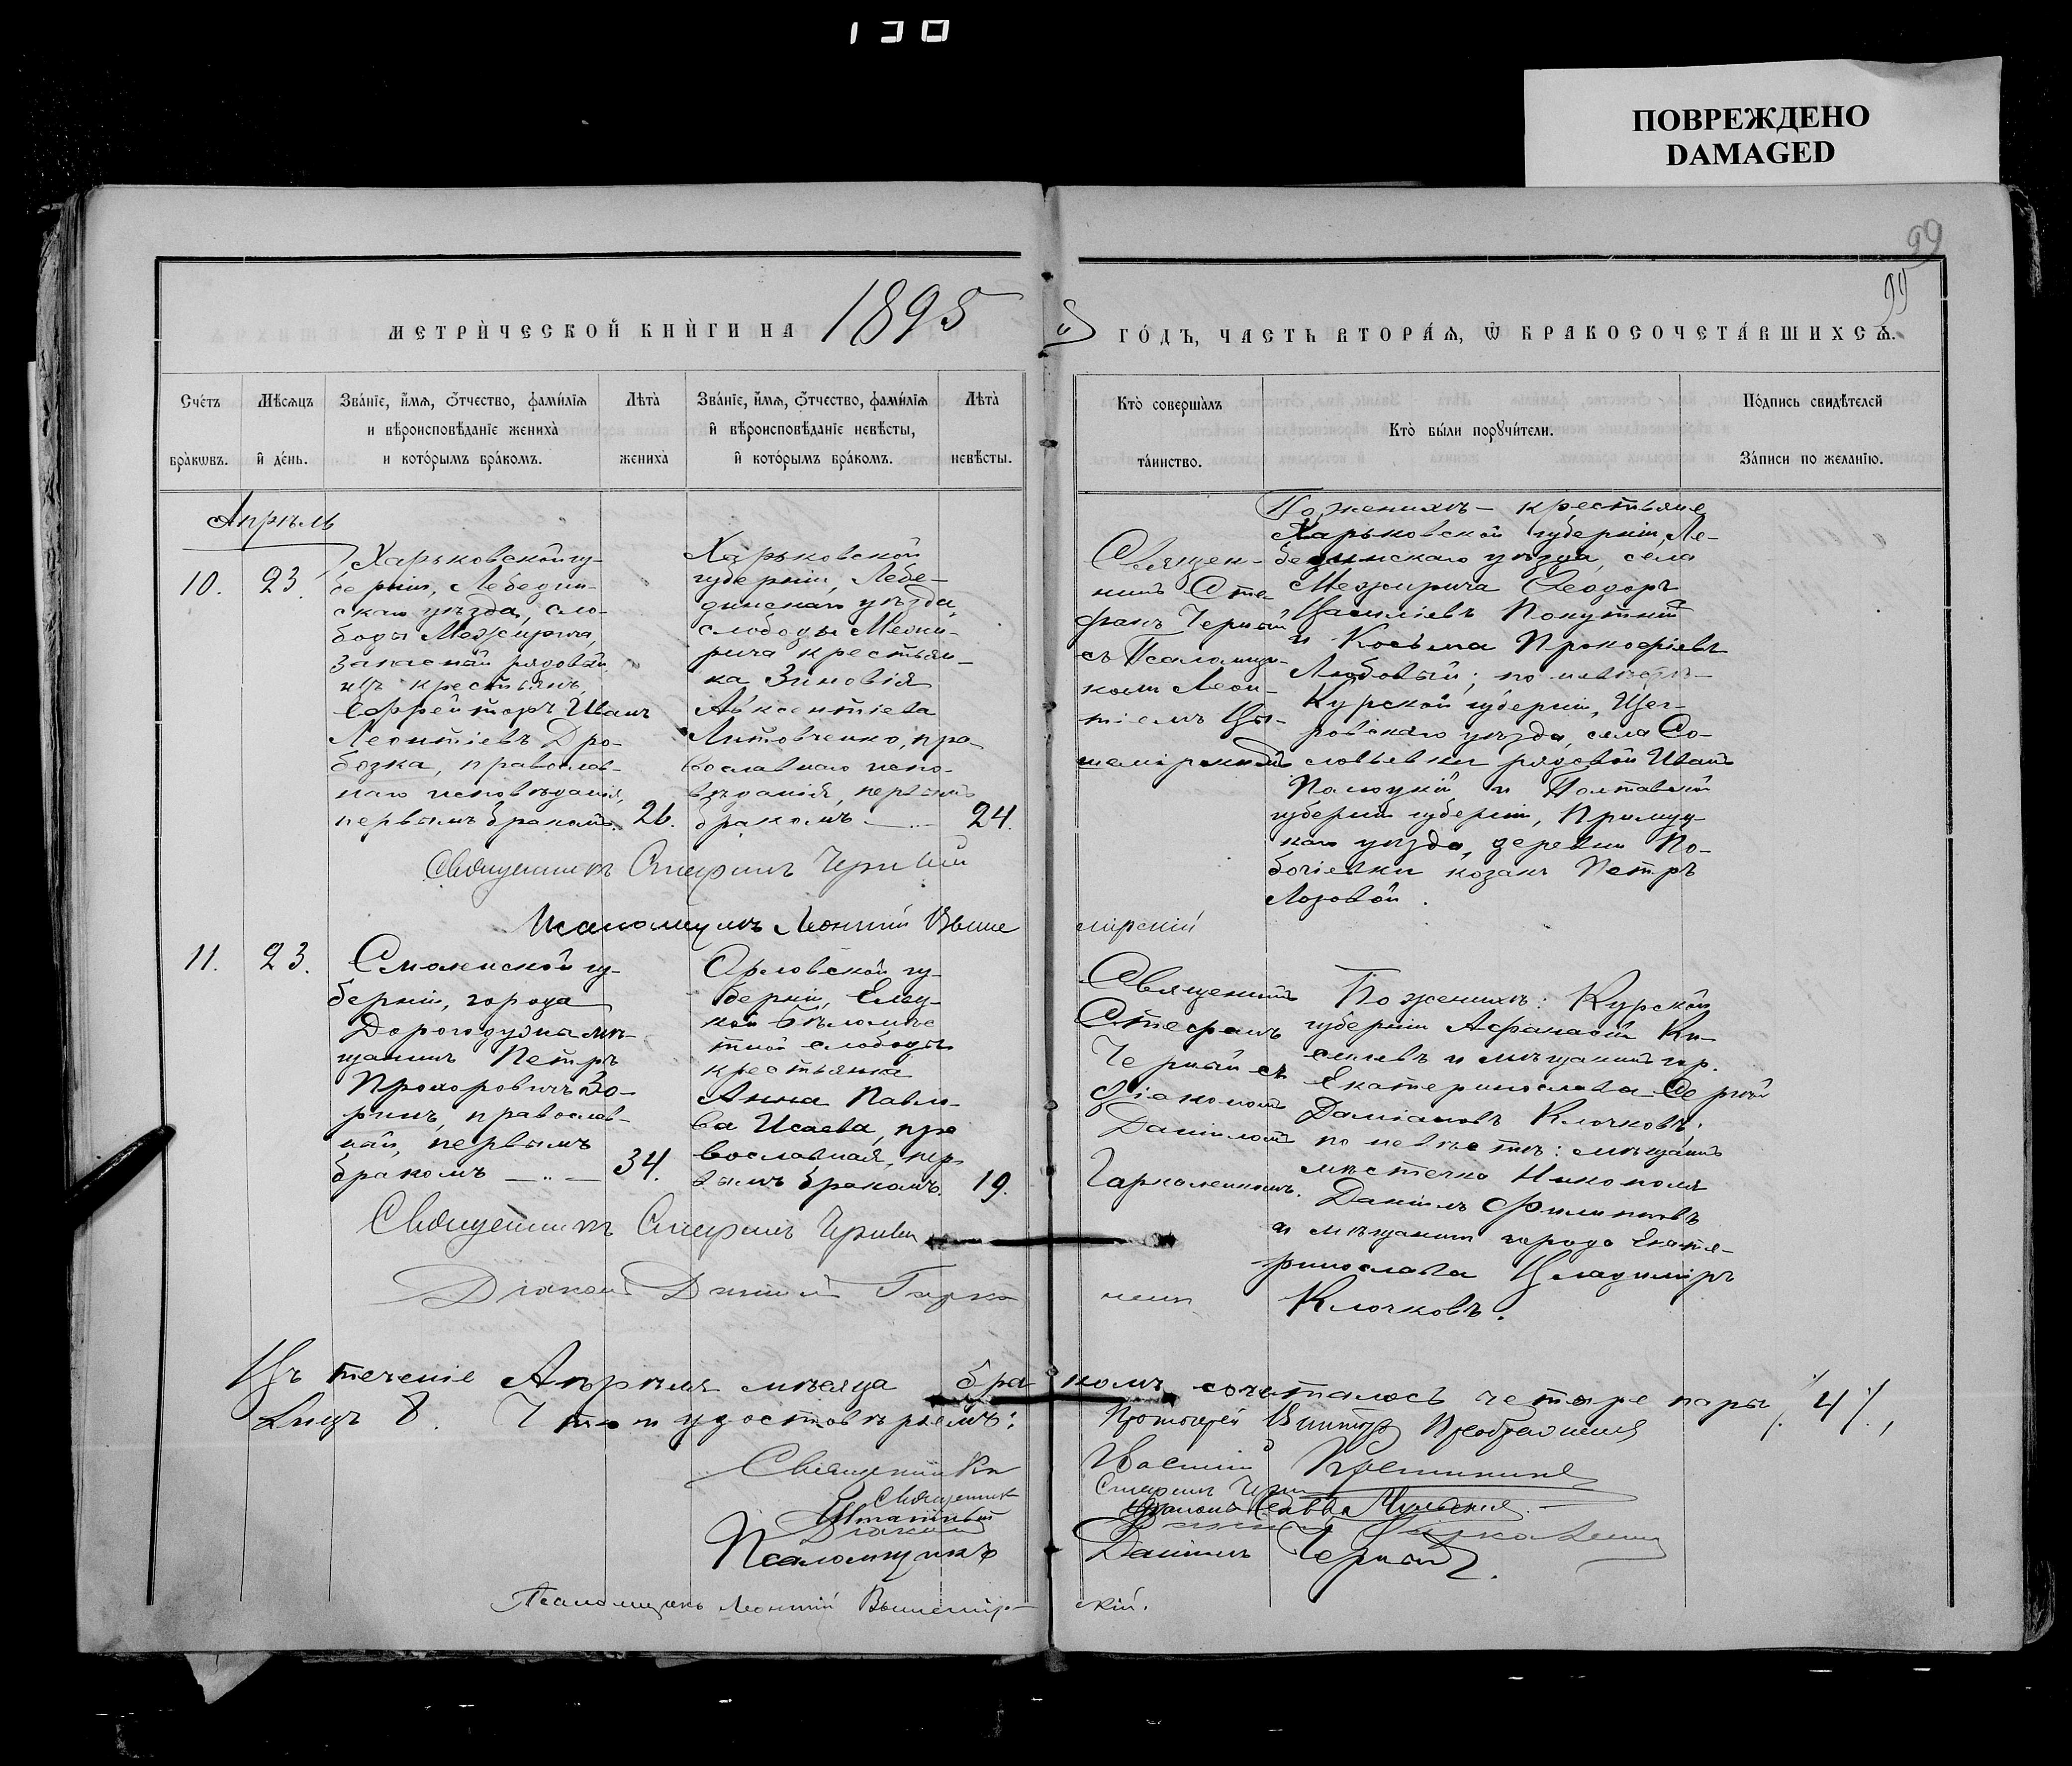 130
ПОВРЕЖДЕНО
DAMAGED
99
99
МЕТРИ́ЧЕСКОЙ КНИ́ГИ НА 1895 й ГО́ДЪ, ЧАСТЬ ВТОРА́Я, Ѡ БРАКОСОЧЕТА́ВШИХСЯ.
Сче́тъ бра̀кѡвъ.
Мѣ́сяцъ и̑ де́нь.
Зва́нїе, и̑́мя, ѻ҆́тчество, фами́лїя
и вѣроисповѣ́данїе жениха̀
и кото́рымъ бра́комъ.
Лѣта̀ жениха̀
Зва́нїе, и̑́мя, ѻ҆́тчество, фами́лїя
и̑ вѣроисповѣ́данїе невѣ́сты,
и̑ кото́рымъ бра́комъ.
Лѣта̀ невѣ́сты.
Кто̀ соверша́лъ
та́инство.
Кто̀ бы́ли порꙋчи́тели.
По́дпись свидѣ́телей
За́писи по жела́нїю.
Апрѣль
10. 23.
Харьковской гу-
берніи, Лебедин-
скаго уѣзда, сло-
боды Межирича,
запасной рядовой
изъ крестьянъ,
Ефрейторъ Иванъ
Леонтіевъ Дро-
бозка, православ-
наго исповѣданія,
первымъ бракомъ. 26.
Харьковской
губерніи, Лебе-
динскаго уѣзда,
слободы Межи-
рича крестьян-
ка Зиновія
Авксентіева
Литовченко, пра-
вославнаго испо-
вѣданія, первымъ
бракомъ 24.
Священ-
никъ Сте-
фанъ Черный
съ Псаломщи-
комъ Леон-
тіемъ Вы-
шемірскимъ
По женихѣ - крестьяне
Харьковской губерніи, Ле-
бединскаго уѣзда, села
Межирича Ѳеодоръ
Василіевъ Покутній
и Косьма Прокофіевъ
Любовый; по невѣстѣ -
Курской губерніи, Щег-
ровскаго уѣзда, села Со-
ловьевки рядовой Иванъ
и Полтавской
губерніи губерніи,
каго уѣзда, деревни
козакъ Петръ
Лозовой.
Священникъ Стефанъ Черный
Псаломщикъ Леонтій Выше мірскій
11. 23.
Смоленской гу-
берніи, города
Дорогобужа мѣ-
щанинъ Петръ
Прохоровичъ Зо-
ринъ, православ-
ный, первымъ
бракомъ 34.
Орловской гу-
берніи, Елец-
кой Бѣломѣс
тной слободы
крестьянка
Анна Павло-
ва Исаева, пра
вославная, пер
вымъ бракомъ. 19.
Священникъ
Стефанъ
Черный съ
Діакономъ
Даніиломъ
Гаркавенкомъ.
По женихѣ: Курской
губерніи Афанасій Ки-
селевъ и мѣщанинъ гор.
Екатеринослава Сергѣй
Даміановъ Клочковъ;
по невѣстѣ: мѣщанинъ
мѣстечка Никополя
Даніилъ Филиповъ
и мѣщанинъ города Екате-
ринослава Владиміръ
Клочковъ.
Священникъ Стефанъ Черный
Діаконъ Даніилъ Гарка
Въ теченіе Апрѣля мѣсяца бра комъ сочеталось четыре пары ./. 4 ./.,
Лицъ 8. Что и удостовѣряемъ:
Протоіерей
Священникъ Василій
Священникъ Стефанъ Черный
Діаконъ
Псаломщикъ Даніилъ Черный
Псаломщикъ Леонтій Вышемір- скій.